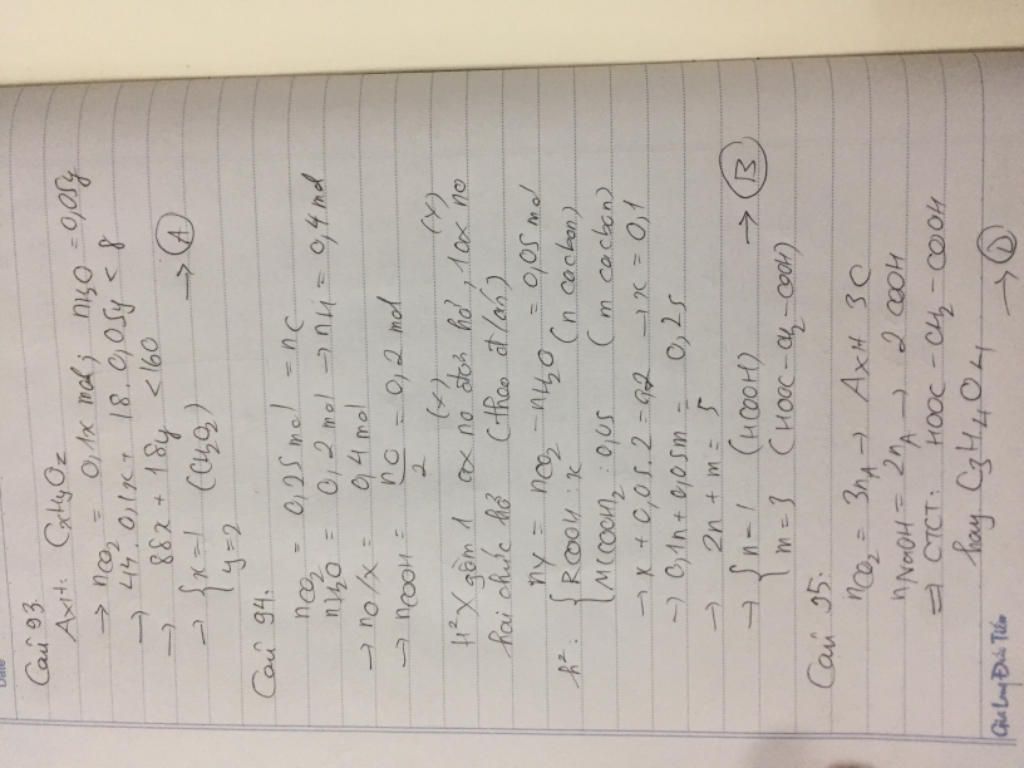 Date
Câu 93
Axit: CxHyOz
→ nCO2 = 0,1x mol; nH2O = 0,05y
→ 44.0,1x + 18.0,05y < 8
→ 88x + 18y < 160
→ { x=1 (CH2O2) → (A)
y=2
Câu 94.
nCO2 = 0,25 mol = nC
nH2O = 0,2 mol → nH = 0,4 mol
→ nO/x = 0,4 mol
→ nCOOH = nO/2 = 0,2 mol
(x) (y)
H² X gồm 1 ax no đơn hở, 1 ax no
hai chức hở (theo đ/án)
nY = nCO2 - nH2O = 0,05 mol
h²: { RCOOH: x (n cacbon)
M(COOH)2: 0,05 (m cacbon)
→ x + 0,05.2 = 0,2 → x = 0,1
→ 0,1n + 0,05m = 0,25
→ 2n + m = 5
→ { n=1 (HCOOH) → (B)
m=3 (HOOC-CH2-COOH)
Câu 95:
nCO2 = 3nA → Axit 3C
nNaOH = 2nA → 2 COOH
⇒ CTCT: HOOC-CH2-COOH
hay C3H4O4 → (D)